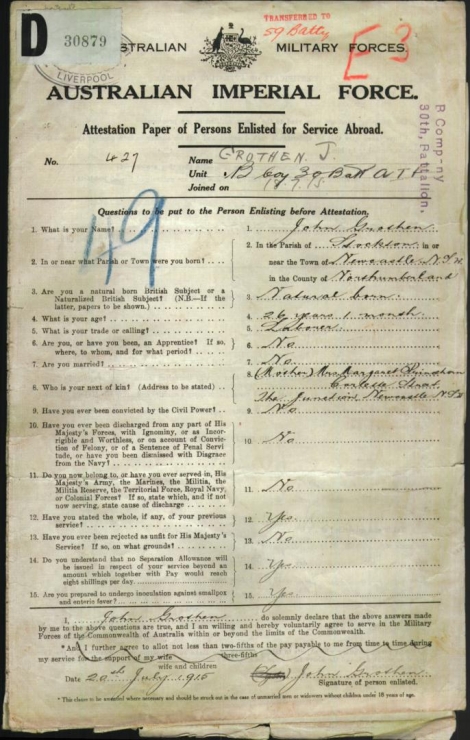 D
30879
LIVERPOOL
TRANSFERRED TO
59 Battn
E3
AUSTRALIAN MILITARY FORCES.
AUSTRALIAN IMPERIAL FORCE.
Attestation Paper of Persons Enlisted for Service Abroad.
No. 427 Name GROTHEN. J
Unit B Coy 30 Batt A I F
Joined on
B Company
30th. Battalion.
49
Questions to be put to the Person Enlisting before Attestation.
1. What is your Name? 1. John Grothen
2. In or near what Parish or Town were you born? 2. In the Parish of Stockton in or
near the Town of Newcastle N.S.W
in the County of Northumberland
3. Are you a natural born British Subject or a
Naturalized British Subject? (N.B.—If the
latter, papers to be shown.) 3. Natural born
4. What is your age? 4. 26 years 1 month
5. What is your trade or calling? 5. Laborer
6. Are you, or have you been, an Apprentice? If so,
where, to whom, and for what period? 6. No
7. Are you married? 7. No
8. Who is your next of kin? (Address to be stated) 8. (Mother) Mrs Margaret
Street
The Junction, Newcastle N.S.W
9. Have you ever been convicted by the Civil Power? 9. No
10. Have you ever been discharged from any part of His
Majesty's Forces, with Ignominy, or as Incor-
rigible and Worthless, or on account of Convic-
tion of Felony, or of a Sentence of Penal Servi-
tude, or have you been dismissed with Disgrace
from the Navy? 10. No
11. Do you now belong to, or have you ever served in, His
Majesty's Army, the Marines, the Militia, the
Militia Reserve, the Territorial Force, Royal Navy,
or Colonial Forces? If so, state which, and if not
now serving, state cause of discharge 11. No
12. Have you stated the whole, if any, of your previous
service? 12. Yes
13. Have you ever been rejected as unfit for His Majesty's
Service? If so, on what grounds? 13. No
14. Do you understand that no Separation Allowance will
be issued in respect of your service beyond an
amount which together with Pay would reach
eight shillings per day. 14. Yes
15. Are you prepared to undergo inoculation against smallpox
and enteric fever? 15. Yes
I, John Grothen do solemnly declare that the above answers made
by me to the above questions are true, and I am willing and hereby voluntarily agree to serve in the Military
Forces of the Commonwealth of Australia within or beyond the limits of the Commonwealth.
*And I further agree to allot not less than two-fifths of the pay payable to me from time to time during
three-fifths
my service for the support of my wife
wife and children
Date 20th July 1915 John Grothen
Signature of person enlisted.
* This clause to be amended where necessary and should be struck out in the case of unmarried men or widowers without children under 18 years of age.